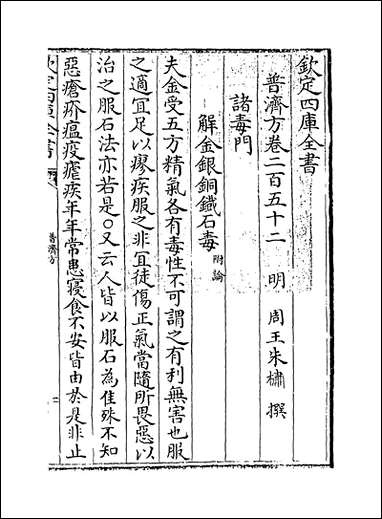 欽定四庫全書
普濟方卷二百五十二　明　周王朱橚　撰
諸毒門
解金銀銅鐵石毒附論
夫金受五方精氣各有毒性不可謂之有利無害也服
之適宜足以瘳疾服之非宜徒傷正氣當隨所畏惡以
治之服石法亦若是○又云人皆以服石為佳殊不知
惡瘡疥瘟疫瘧疾年年常患寝食不安皆由於是非止
欽定四庫全書
普濟方